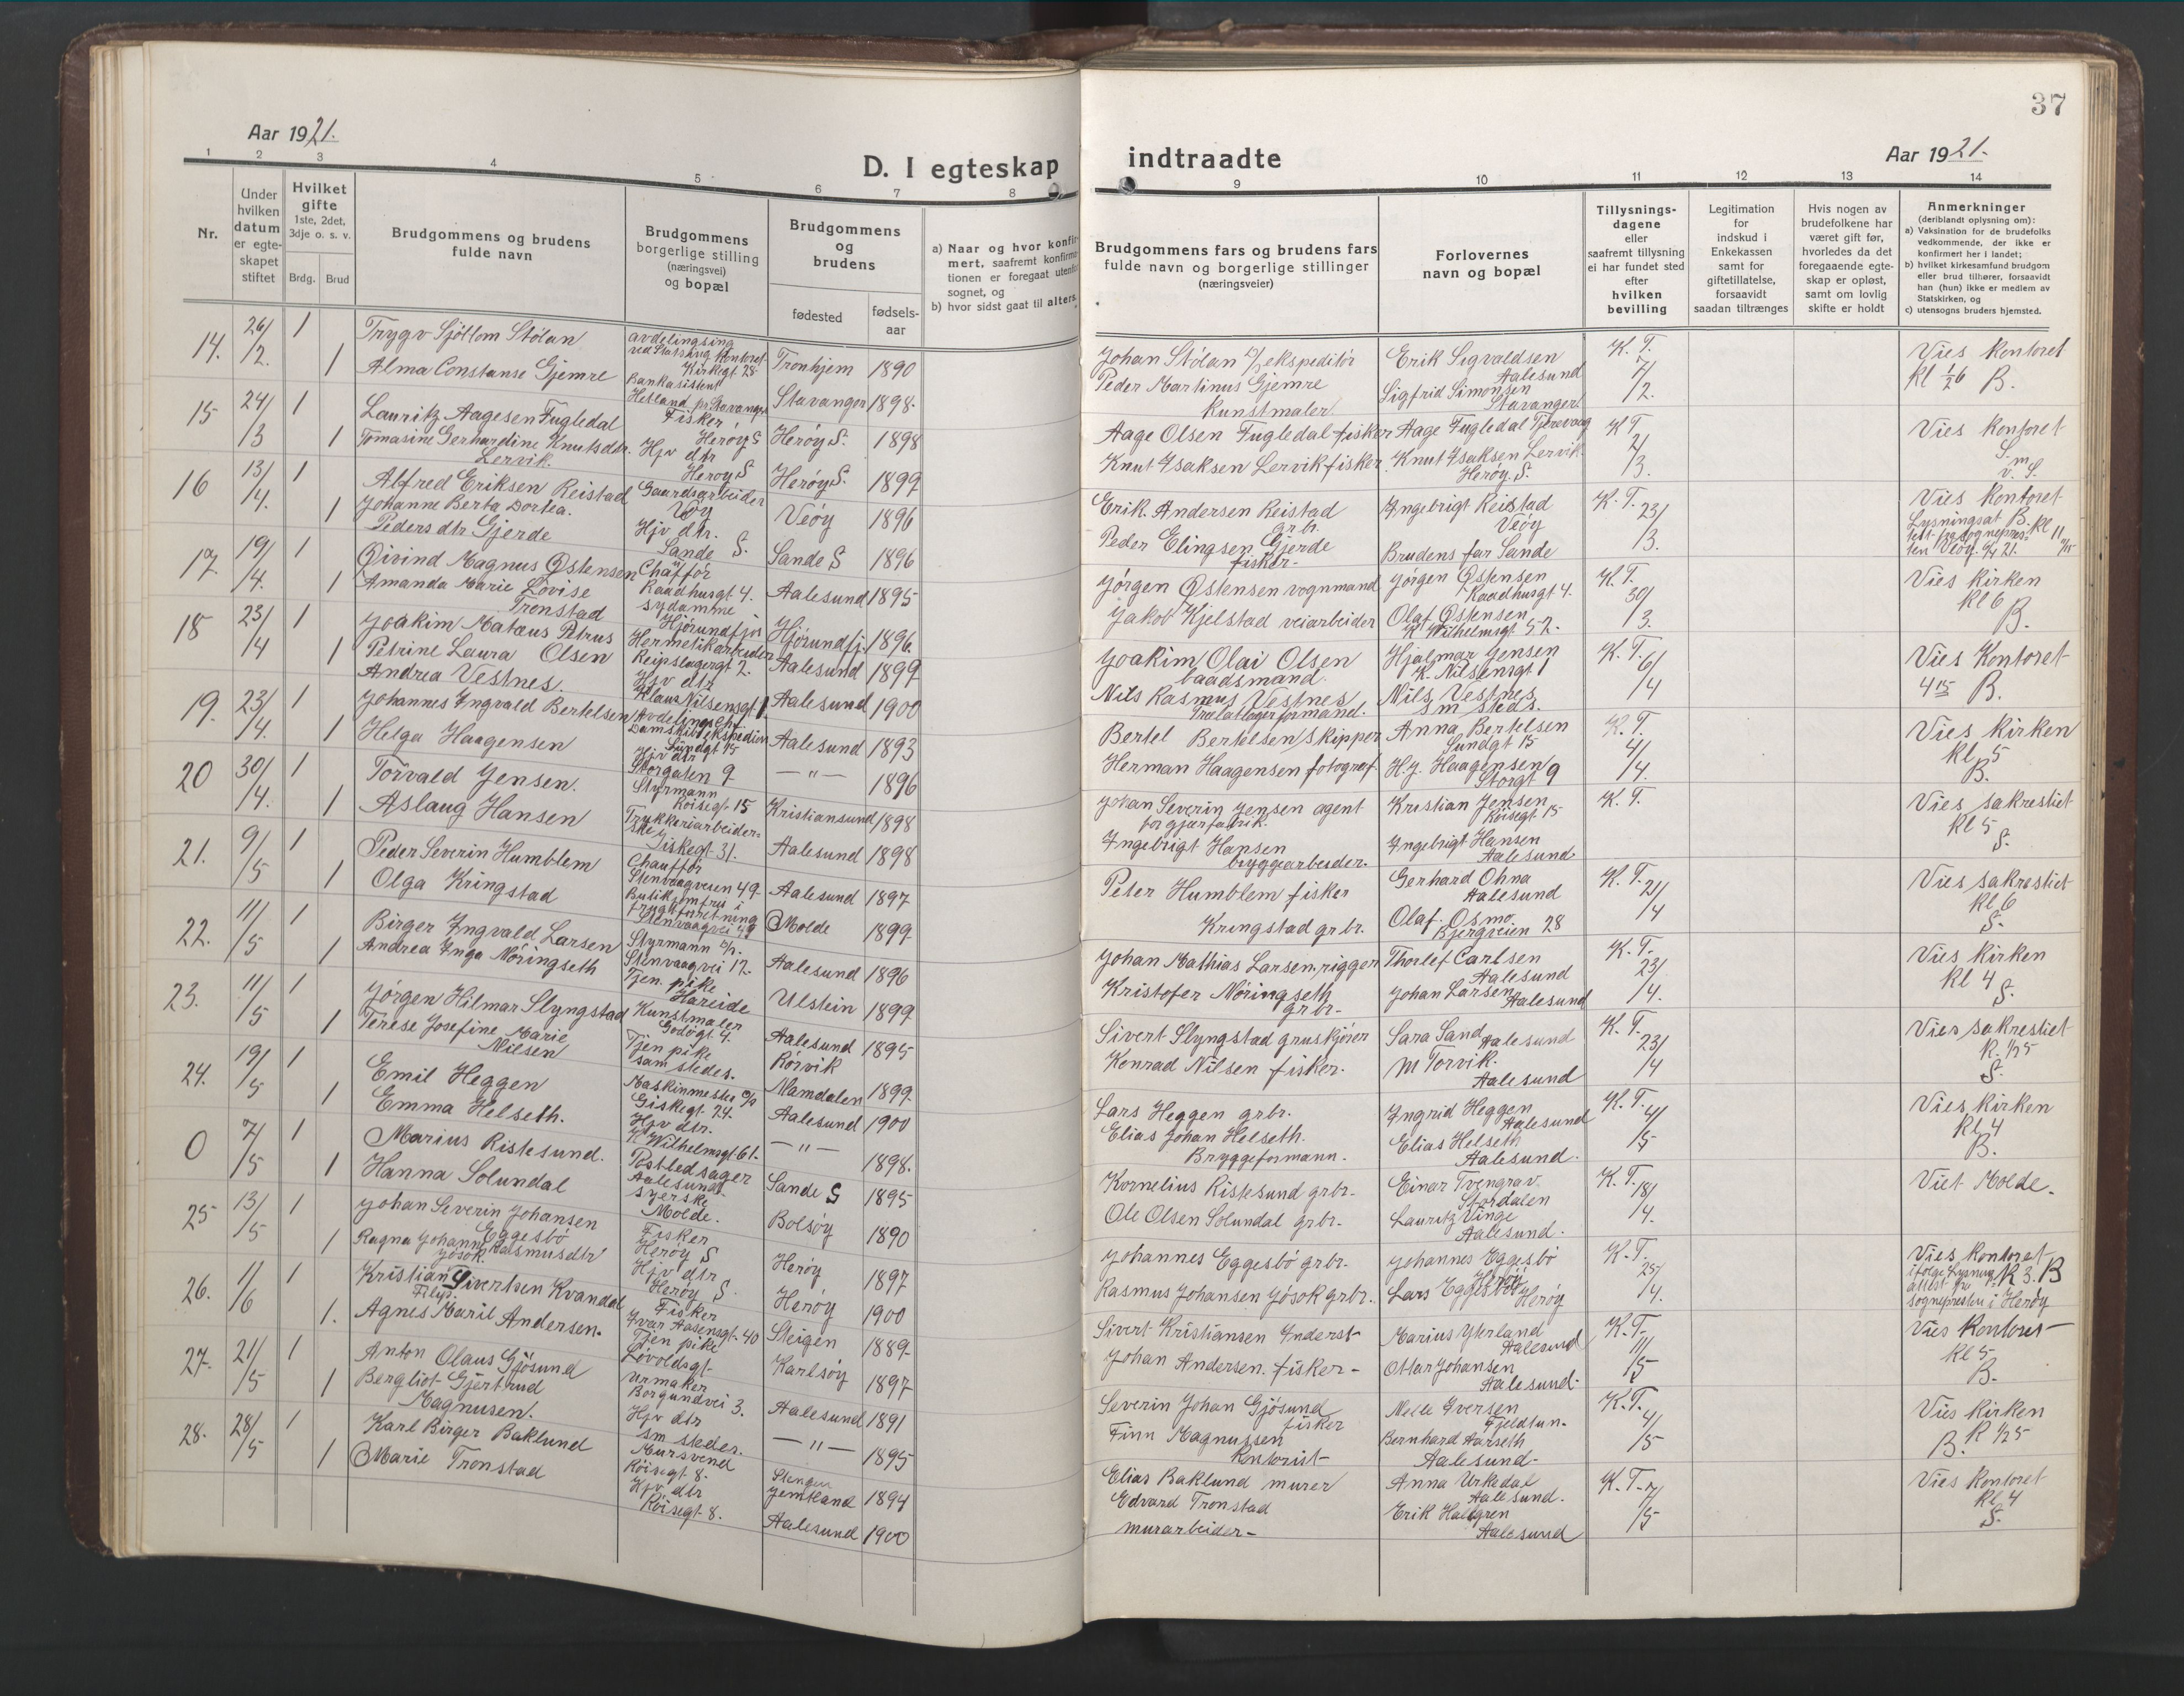 37
Aar 1921.
D. I egteskap
indtraadte
Aar 1921.
1 2 3 4 5 6 7 8 9 10 11 12 13 14
Nr.
Under
hvilken
datum
er egte-
skapet
stiftet
Hvilket
gifte
1ste, 2det,
3dje o. s. v.
Brdg. Brud
Brudgommens og brudens
fulde navn
Brudgommens
borgerlige stilling
(næringsvei)
og bopæl
Brudgommens
og
brudens
fødested
fødsels-
aar
a) Naar og hvor konfir
mert, saafremt konfirma
tionen er foregaat utenfo
sognet, og
b) hvor sidst gaat til alters.
Brudgommens fars og brudens fars
fulde navn og borgerlige stillinger
(næringsveier)
Forlovernes
navn og bopæl
Tillysnings-
dagene
eller
saafremt tillysning
ei har fundet sted
efter
hvilken
bevilling
Legitimation
for
indskud i
Enkekassen
samt for
giftetillatelse,
forsaavidt
saadan tiltrænges
Hvis nogen av
brudefolkene har
været gift før,
hvorledes da det
foregaaende egte-
skap er opløst,
samt om lovlig
skifte er holdt
Anmerkninger
(deriblandt oplysning om):
a) Vaksination for de brudefolks
vedkommende, der ikke er
konfirmert her i landet;
b) hvilket kirkesamfund brudgom
eller brud tilhører, forsaavidt
han (hun) ikke er medlem av
Statskirken, og
c) utensogns bruders hjemsted.
14. 26/2. 1 Trygv Sjöllom Stölan
avdelingsing
ved Statsing kontoret
Kirkegt. 28
Tronhjem 1890
Johan Stölan ekspeditör
Erik Sigvaldsen
Aalesund
K. T. 7/2.
Vies kontoret
Kl ½6 B.
1 Alma Constanse Gjemre
Bankasistent
Hetland pr Stavanger
Stavanger 1898
Peder Martinus Gjemre
Kunstmaler
Sigfrid Simonsen
Stavanger
15 24/3 1 Lauritz Aagesen Fugledal
Fisker
Heröy S
Heröy S. 1898
Aage Olsen Fugledal fisker
Aage Fugledal Tjörvaag
K T. 2/3.
Vies kontoret
S
1 Tomasine Gerhardine Knutsdtr.
Lervik.
Hjv dtr
Heröy S
Heröy S. 1899
Knut Isaksen Lervik fisker
Knut Isaksen Lervik
Heröy S.
16 13/4. 1 Alfred Eriksen Reistad
Gaardsarbeider
Veöy
Veöy 1896
Erik. Andersen Reistad
grb.
Ingebrigt Reistad
Veöy
K. T. 23/3.
Vies kontoret
Lysningsat B. Kl 11
test fra sognepres
ten Veöy
1 Johanne Berta Dortea.
Peders dtr Gjerde
Hjv dtr.
Sande S.
Sande S 1896
Peder Elingsen Gjerde
fisker
Brudens far Sande
17. 19/4. 1 Öivind Magnus Östensen
Chafför
Raadhusgt 4.
Aalesund 1895
Jörgen Östensen vognmand
Jörgen Östensen
Raadhusgt 4.
K. T. 30/3.
Vies kirken
Kl 6
B.
1 Amanda Marie Lovise
Tronstad
sydamme
Hjörundfjor
Hjörundfj. 1896.
Jakob Kjelstad veiarbeider
Olaf Östensen
K Wilhelmsgt 52.
18 23/4 1 Joakim Matæus Petrus
Olsen
Hermetikarbeider
Reipslagergt 2.
Aalesund 1899
Joakim Olai Olsen
baadsmand.
Hjalmar Jensen
K. Nilsensgt 1
K. T. 6/4
Vies Kontoret
4 15 B.
1 Petrine Laura
Andrea Vestnes.
Hjv dtr
Klaus Nilsensgt 1.
Aalesund 1900
Nils Rasmus Vestnes
Trælastlagerformand.
Nils Vestnes
sm steds.
19. 23/4. 1 Johannes Ingvald Bertelsen
Avdelingschf
Damskibsekspedion
Sundgt 15
Aalesund 1893
Bertel Bertelsen Skipper
Anna Bertelsen
Sundgt 15
K. T. 4/4.
Vies kirken
Kl 5
B.
1 Helga Haagensen
Hjv dtr
Storgaten 9
— " — 1896
Herman Haagensen fotograf
H. J. Haagensen
Storgt 9
20 30/4. 1 Torvald Jensen.
Styrmann
Röisegt 15
Kristiansund 1898
Johan Severin Jensen agent
for gjærfabrik.
Kristian Jensen
Röisegt 15
K. T.
Vies sakrestiet
Kl 5
S.
1 Aslaug Hansen
Trykkeriarbeider-
ske
Giskegt 31.
Aalesund 1898
Ingebrigt Hansen
bryggearbeider.
Ingebrigt Hansen
Aalesund
21. 9/5 1 Peder Severin Humblem
Chaufför
Stenvaagveien 49
Aalesund 1897
Peter Humblem fisker
Gerhard Ohna
Aalesund
K. T. 21/4
Vies sakrestiet
Kl 6
S.
1 Olga Kringstad
Butikjomfru i
frugtforretning
Stenvaagvei 49
Molde 1899
Kringstad grbr.
Olaf. Osmo
Bjergveien 28
22. 11/5 1 Birger Ingvald Larsen
Styrmann
Stenvaagvei 17
Aalesund 1896
Johan Mathias Larsen, rigger
Thorlef Carlsen
Aalesund
K. T. 23/4.
Vies kirken
Kl 4
S.
1 Andrea Inga Nöringseth
Tjen. pike
Hareide
Ulstein 1899
Kristofer Nöringseth
grbr-
Johan Larsen
Aalesund
23. 11/5 1 Jörgen Hilmar Slyngstad
Kunstmaler
Godögt 4.
Aalesund 1895
Sivert Slyngstad gruskjörer
Sara Sand Aalesund
K. T. 23/4
Vies sakrestiet
K. ½5
S.
1 Terese Josefine Marie
Nilsen
Tjen pike
sam stedes.
Rörvik
Namdalen 1899
Konrad Nilsen fisker.
M Torvik.
Aalesund
24. 19/5 1 Emil Heggen
Maskinmester
Giskegt. 24.
Aalesund 1900
Lars Heggen grbr.
Ingrid Heggen
Aalesund
K. T. 4/5
Vies kirken
Kl 4
B.
1 Emma Helseth.
Hjv dtr.
K. Wilhelmsgt 61.
— " — 1898.
Elias Johan Helseth.
Bryggeformann.
Elias Helseth
Aalesund.
0 7/5 1 Marius Ristesund.
Postledsager
Aalesund
Sande S 1895
Kornelius Ristesund grbr-
Einar Tvengrav.
Stordalen
K. T. 18/4.
Viet Molde.
1 Hanna Solundal
syerske
Molde.
Bolsöy 1890
Ole Olsen Solundal grbr-
Lauritz Vinge
Aalesund.
25 13/5 1 Johan Severin Johansen
Eggesbö
Fisker
Heröy S
Heröy 1897
Johannes Eggesbö grbr-
Johannes Eggesbö
Heröy
K. T. 25/4.
Vies kontoret
ifölge Lysning K 3. B
attest fra
sognepresten i Heröy
1 Ragna Johanne Rasmusdtr
Jösok
Hjv dtr
Heröy S
Heröy 1900
Rasmus Johansen Jösok grbr.
Lars Eggesbö Heröy
26. 1/6 1 Kristian Sivertsen Kvandal
Filip.
Fisker
Ivar Aasensgt. 40
Steigen 1889
Sivert Kristiansen Inderst
Marius Ytrland
Aalesund
K. T. 11/5
Vies kontoret
Kl 5
B.
1. Agnes Maril Andersen.
Tjen pike
Lövoldsgt
Karlsöy 1897
Johan Andersen. fisker-
Ottar Johansen
Aalesund
27. 21/5 1 Anton Olaus Gjösund
Urmaker
Borgundvei 3.
Aalesund 1891
Severin Johan Gjösund
fisker
Melle Iversen
Fjeldtun.
K. T. 4/5
Vies kirken
B. K ½5
1 Bergliot Gjertrud
Magnusen.
Hjv dtr
sm steder.
— " — 1895
Finn Magnussen
Kntorist
Bernhard Aarseth
Aalesund
28. 28/5 1 Karl Birger Baklund
Mursvend
Röisegt 8.
Jemtland 1894
Elias Baklund murer
Anna Urkedal
Aalesund.
K. T. 7/5
Vies kontoret
Kl 4
S.
1 Marie Tronstad
Hjv dtr
Röisegt 8.
Aalesund 1900
Edvard Tronstad
murarbeider-
Erik Hallgren
Aalesund